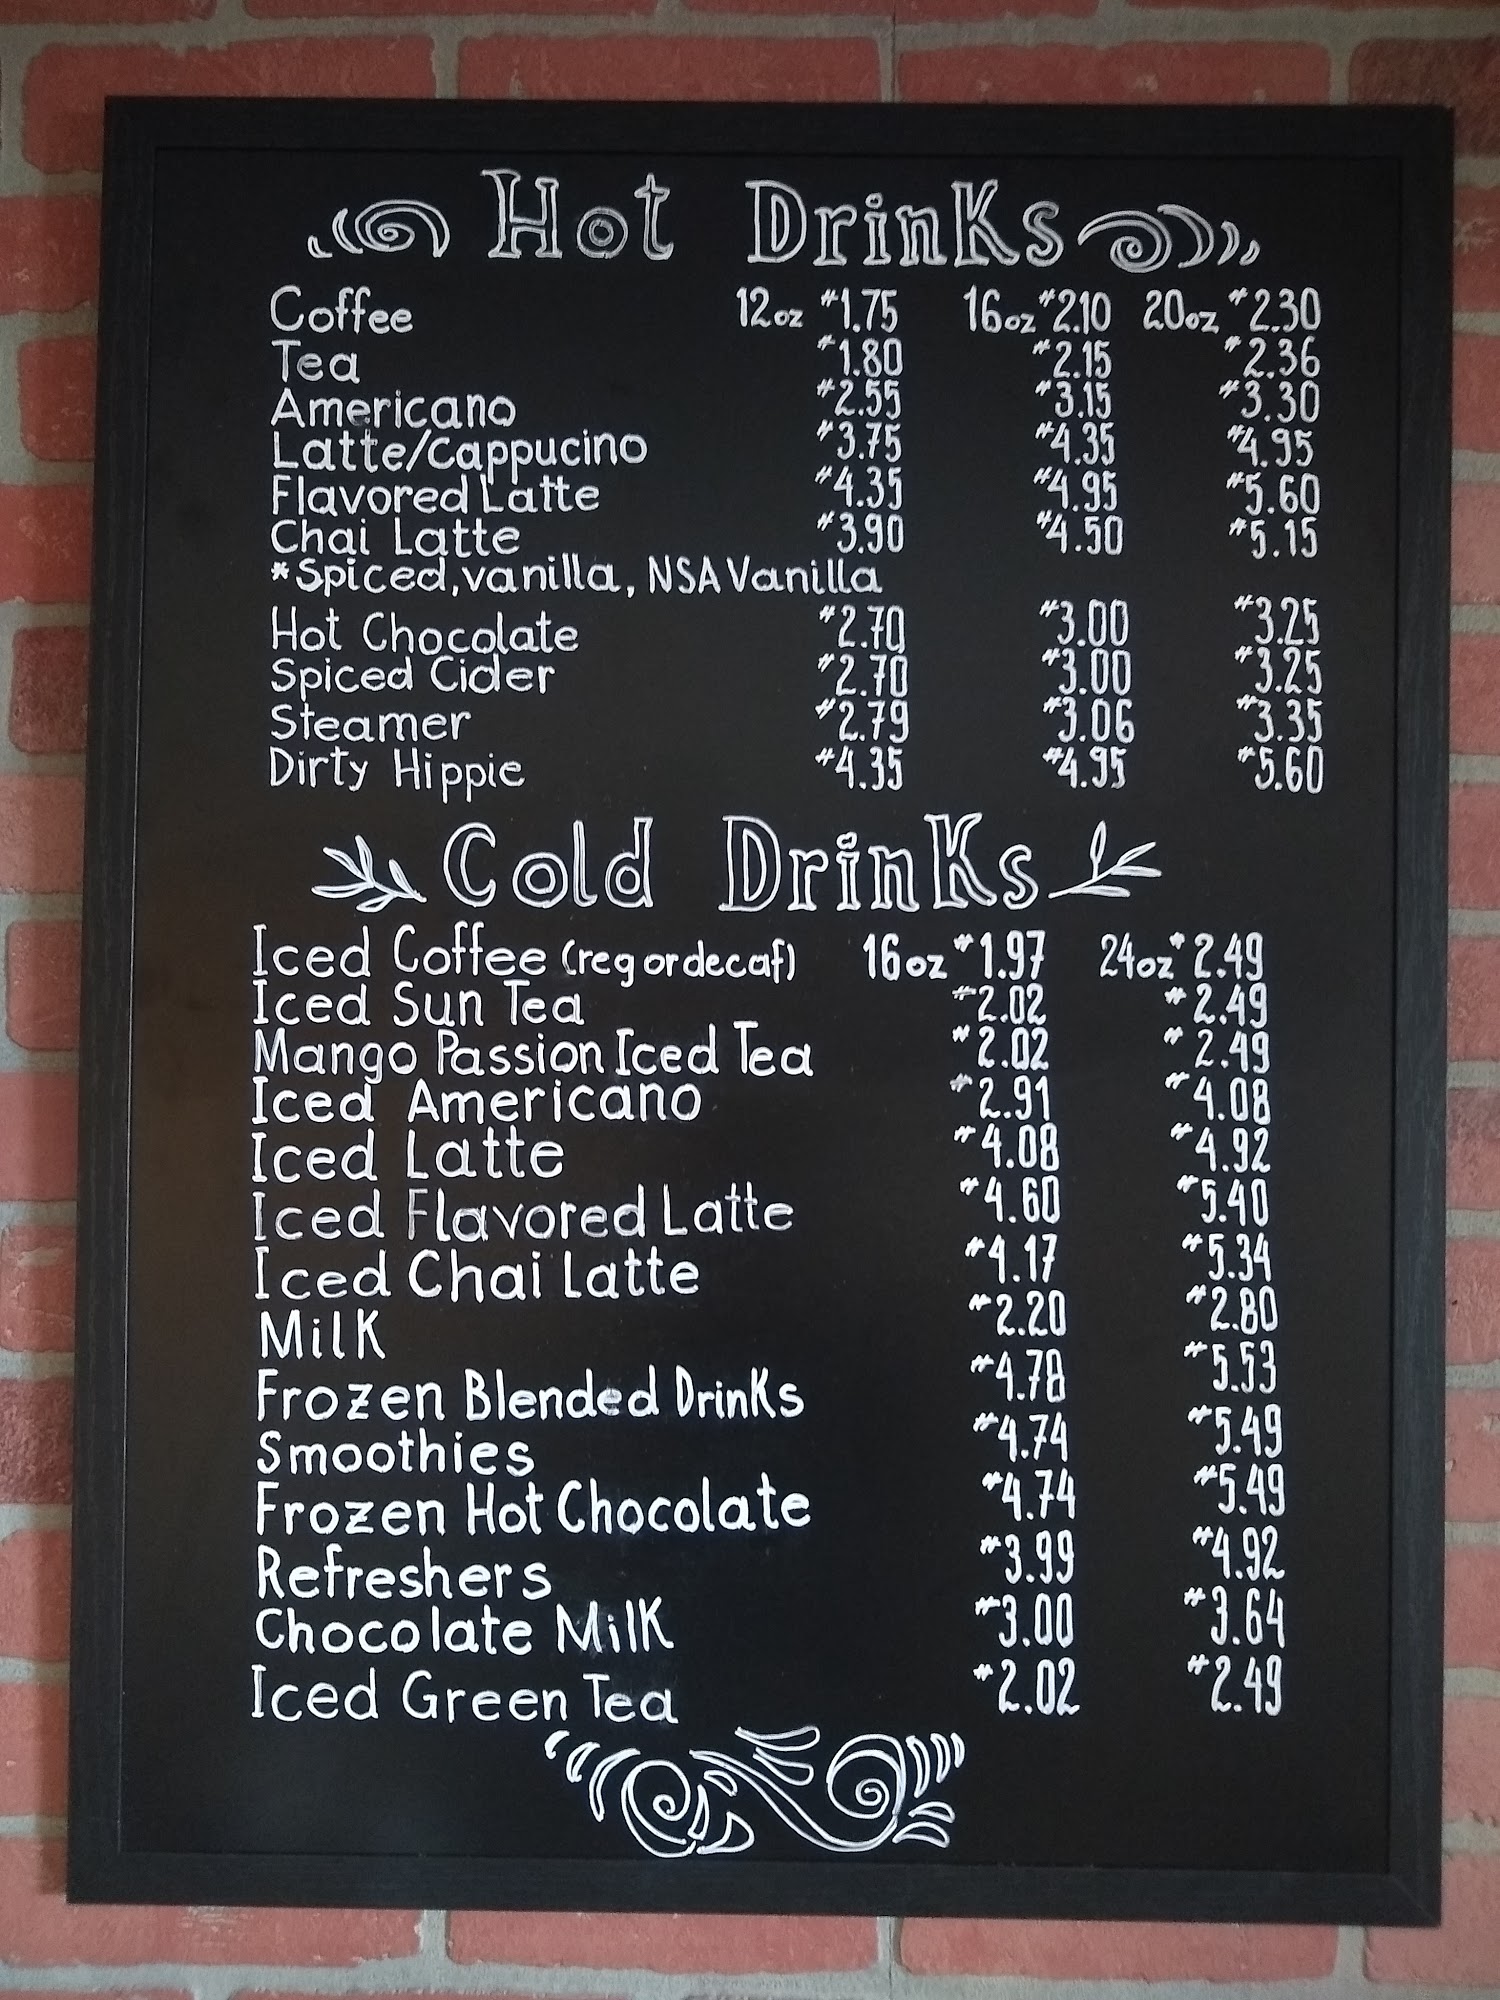 Hot Drinks
Coffee 12oz $1.75 16oz $2.10 20oz $2.30
Tea $1.80 $2.15 $2.36
Americano $2.55 $3.15 $3.30
Latte/Cappucino $3.75 $4.35 $4.95
Flavored Latte $4.35 $4.95 $5.60
Chai Latte $3.90 $4.50 $5.15
*Spiced, vanilla, NSA Vanilla
Hot Chocolate $2.70 $3.00 $3.25
Spiced Cider $2.70 $3.00 $3.25
Steamer $2.79 $3.06 $3.35
Dirty Hippie $4.35 $4.95 $5.60
Cold Drinks
Iced Coffee (reg or decaf) 16oz $1.97 24oz $2.49
Iced Sun Tea $2.02 $2.49
Mango Passion Iced Tea $2.02 $2.49
Iced Americano $2.91 $4.08
Iced Latte $4.08 $4.92
Iced Flavored Latte $4.60 $5.40
Iced Chai Latte $4.17 $5.34
Milk $2.20 $2.80
Frozen Blended Drinks $4.78 $5.53
Smoothies $4.74 $5.49
Frozen Hot Chocolate $4.74 $5.49
Refreshers $3.99 $4.92
Chocolate Milk $3.00 $3.64
Iced Green Tea $2.02 $2.49